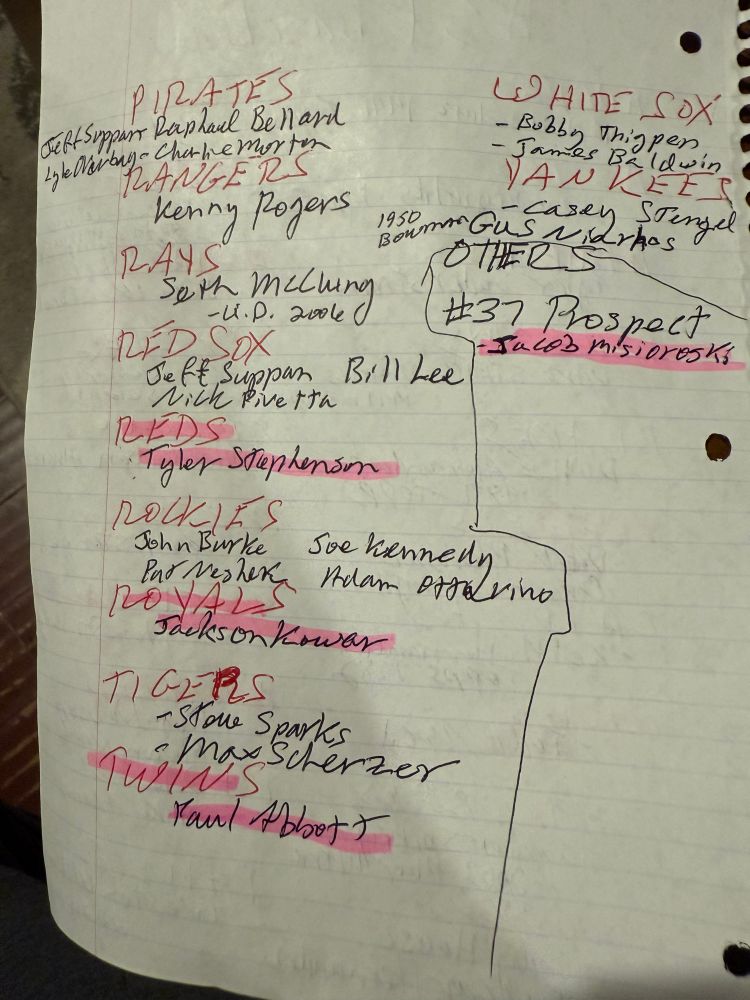 PIRATES
Jeff Suppan Raphael Bellard
Lyle Overbay - Charlie Morton
RANGERS
Kenny Rogers
RAYS
Seth McClung
- U.D. 2006
RED SOX
Jeff Suppan Bill Lee
Nick Pivetta
REDS
Tyler Stephenson
ROCKIES
John Burke Joe Kennedy
Pat Neshek Adam Ottavino
ROYALS
Jackson Kowar
TIGERS
- Steve Sparks
- Max Scherzer
TWINS
Paul Abbott
WHITE SOX
- Bobby Thigpen
- James Baldwin
YANKEES
- Casey Stengel
1950 Bowman Gus Niarhos
OTHERS
#37 Prospect
- Jacob Misioroski